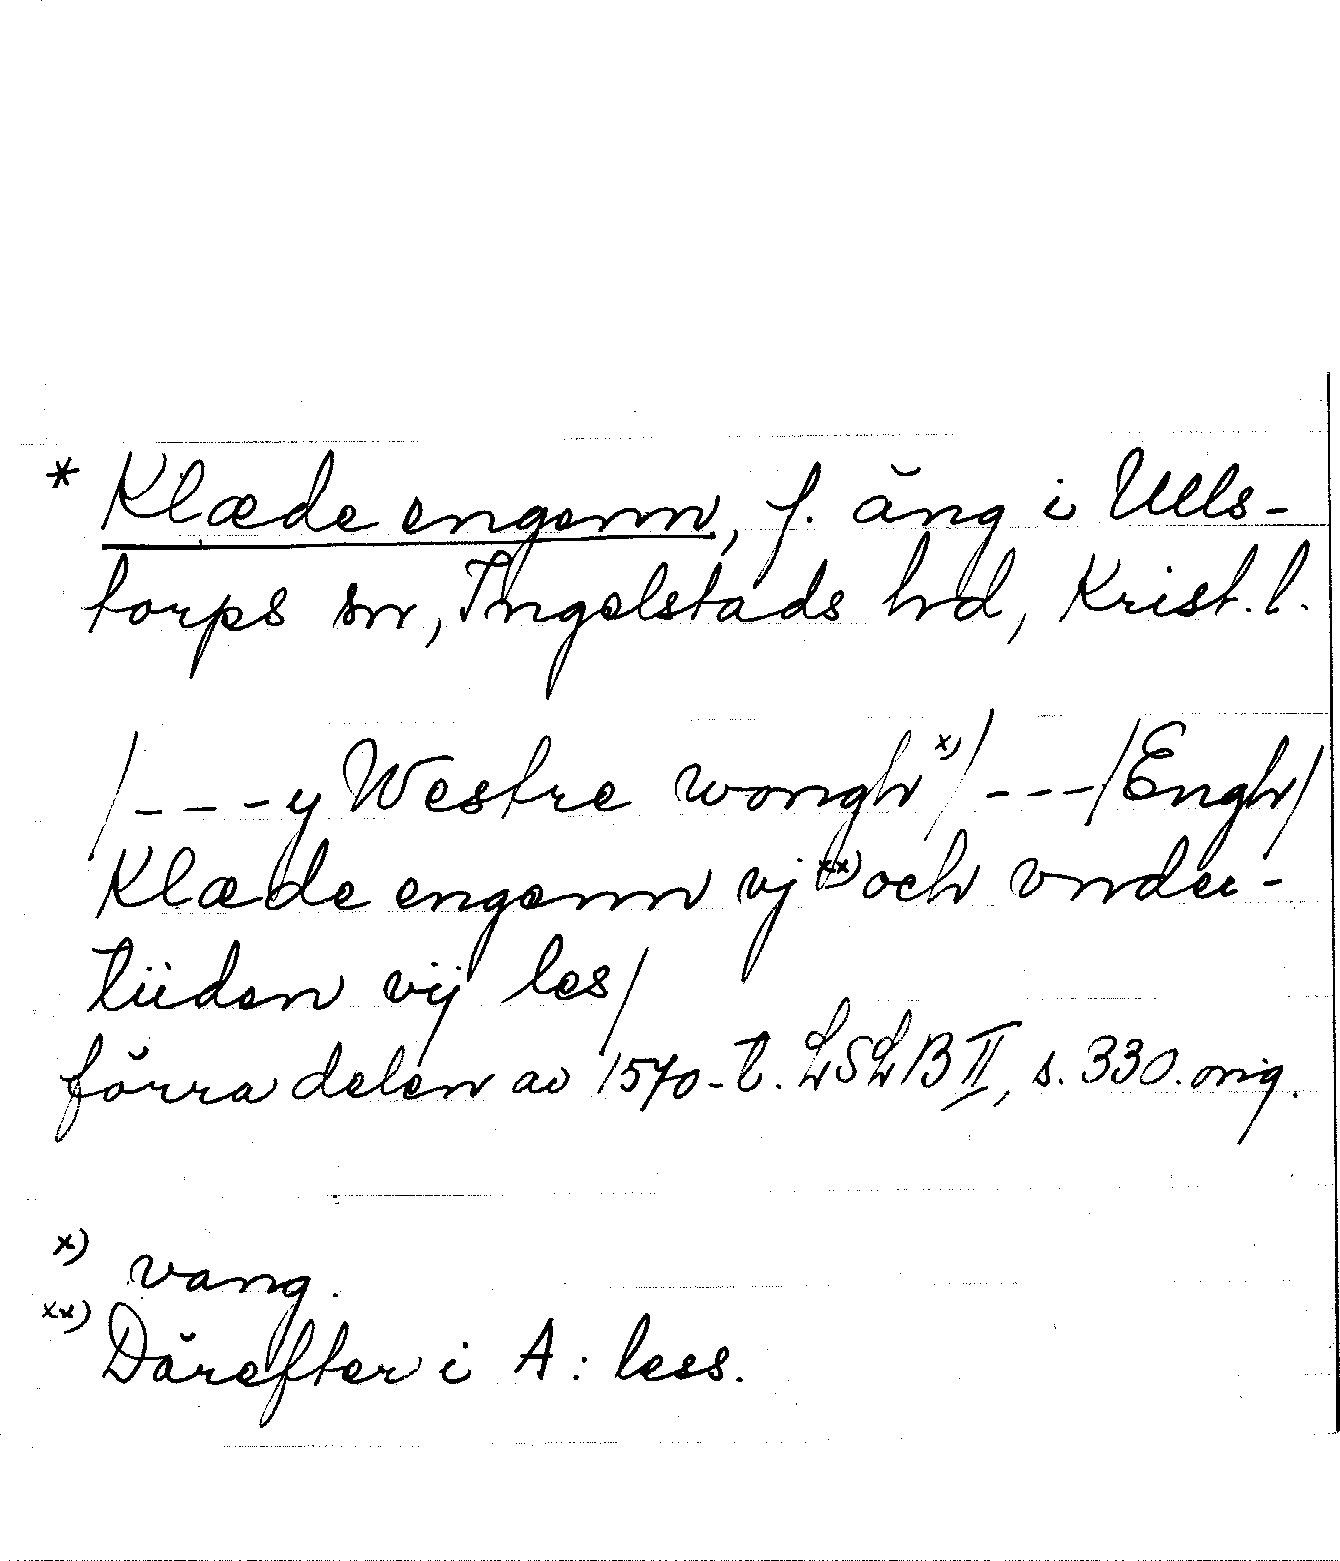 * Klæde engenn, f. äng i Ulls-
torps sn, Ingelstads hrd, Krist. l.
/---y Westre wongh x)/---/Engh/
Klæde engenn vj xx) och vnder-
tiiden vij les/
förra delen av 1570-t. LSLB II, s. 330. orig.
x) vang.
xx) Därefter i A: less.